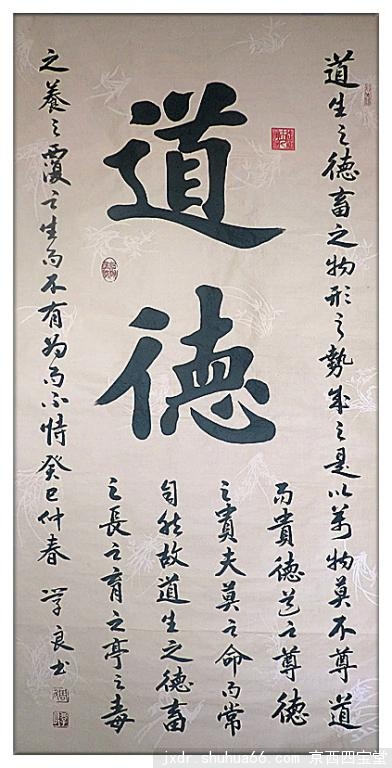 道德
道生之德畜之物形之勢成之是以萬物莫不尊道
而貴德道之尊德
之貴夫莫之命而常
自然故道生之德畜
之長之育之亭之毒
之養之覆之生而不有為而不恃癸巳仲春 学良书
jxdr.shuhua66.com 京西四宝堂